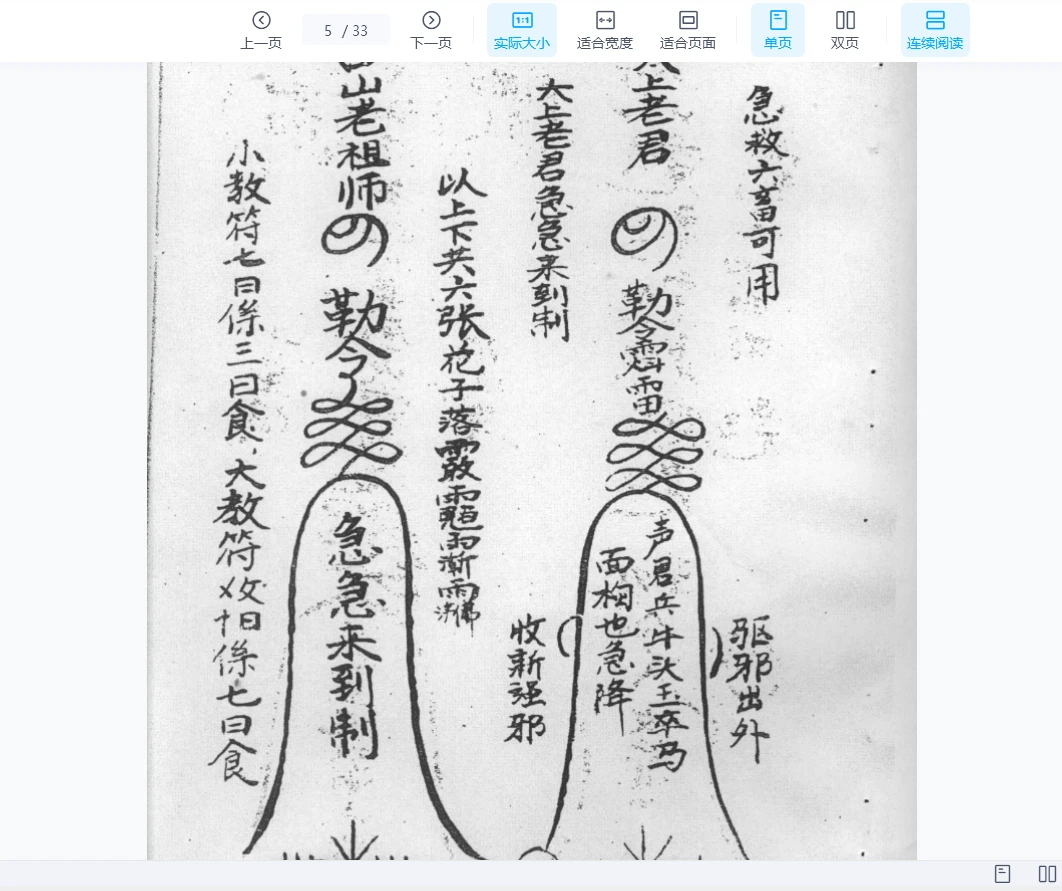 上一页
5 / 33
下一页
1:1
实际大小
适合宽度
适合页面
单页
双页
连续阅读
急救六畜可用
上老君
勒令
雷
声君兵牛头玉卒马
面 也急降
驱邪出外
收新 邪
太上老君急急来到制
以上下共六张花子落
山老祖师
勒令
急急来到制
小教符七日係三日食,大教符 日係七日食